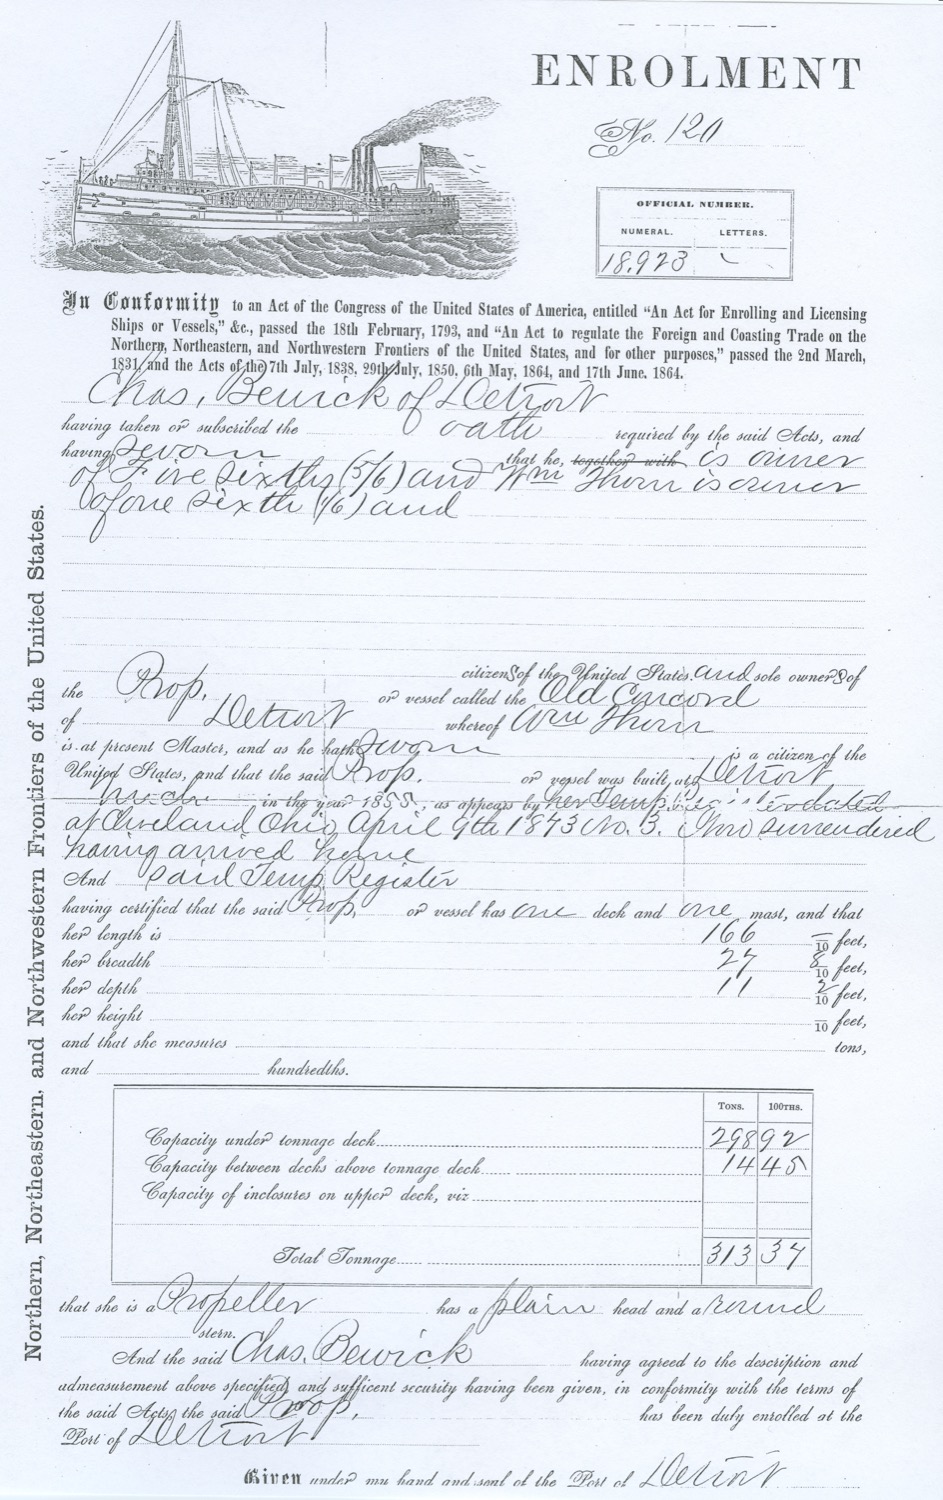 ENROLMENT
No. 120
OFFICIAL NUMBER.
NUMERAL. LETTERS.
18.923
In Conformity to an Act of the Congress of the United States of America, entitled "An Act for Enrolling and Licensing
Ships or Vessels," &c., passed the 18th February, 1793, and "An Act to regulate the Foreign and Coasting Trade on the
Northern, Northeastern, and Northwestern Frontiers of the United States, and for other purposes," passed the 2nd March,
1831, and the Acts of the 7th July, 1838, 29th July, 1850, 6th May, 1864, and 17th June, 1864.
Chas. Bewick of Detroit
having taken or subscribed the oath required by the said Acts, and
having sworn that he, together with is owner
of Five sixths (5/6) and Wm Thorn is owner
of one sixth (1/6) and
citizens of the United States and sole owners of
the Prop. or vessel called the Old Concord
of Detroit whereof Wm Thorn
is at present Master, and as he hath sworn is a citizen of the
United States, and that the said Prop. or vessel was built, at Detroit
Mich in the year 1855, as appears by her Temp. dated
at Cleveland Ohio, April 9th 1873 No. 3. Now surrendered
having arrived home
And said Temp. Register
having certified that the said Prop. or vessel has one deck and one mast, and that
her length is 166 /10 feet,
her breadth 27 8/10 feet,
her depth 11 2/10 feet,
her height /10 feet,
and that she measures tons,
and hundredths.
TONS. 100THS.
Capacity under tonnage deck 298 92
Capacity between decks above tonnage deck 14 45
Capacity of inclosures on upper deck, viz
Total Tonnage 313 37
that she is a Propeller has a plain head and a round
stern.
And the said Chas. Bewick having agreed to the description and
admeasurement above specified, and sufficent security having been given, in conformity with the terms of
the said Acts, the said Prop. has been duly enrolled at the
Port of Detroit
Given under my hand and seal of the Port of Detroit
Northern, Northeastern, and Northwestern Frontiers of the United States.